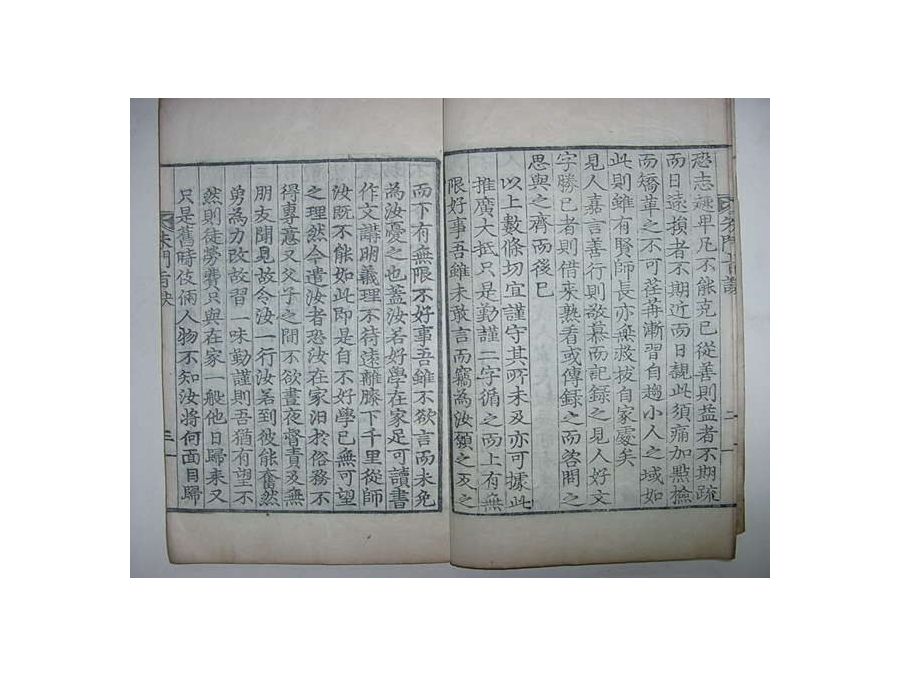 朱門旨訣
二
恐志趣卑凡不能克己從善則益者不期疏
而日遠損者不期近而日親此須痛加點檢
而矯革之不可荏苒漸習自趨小人之域如
此則雖有賢師長亦無救拔自家處矣
見人嘉言善行則敬慕而記錄之見人好文
字勝己者則借來熟看或傳錄之而咨問之
思與之齊而後已
以上數條切宜謹守其所未及亦可據此
推廣大抵只是勤謹二字循之而上有無
限好事吾雖未敢言而竊為汝願之反之
而下有無限不好事吾雖不欲言而未免
為汝憂之也蓋汝若好學在家足可讀書
作文講明義理不待遠離膝下千里從師
汝既不能如此即是自不好學已無可望
之理然今遣汝者恐汝在家汨於俗務不
得專意又父子之間不欲晝夜督責及無
朋友聞見故令汝一行汝若到彼能奮然
勇為力改故習一味勤謹則吾猶有望不
然則徒勞費只與在家一般他日歸來又
只是舊時伎倆人物不知汝將何面目歸
朱門旨訣
三